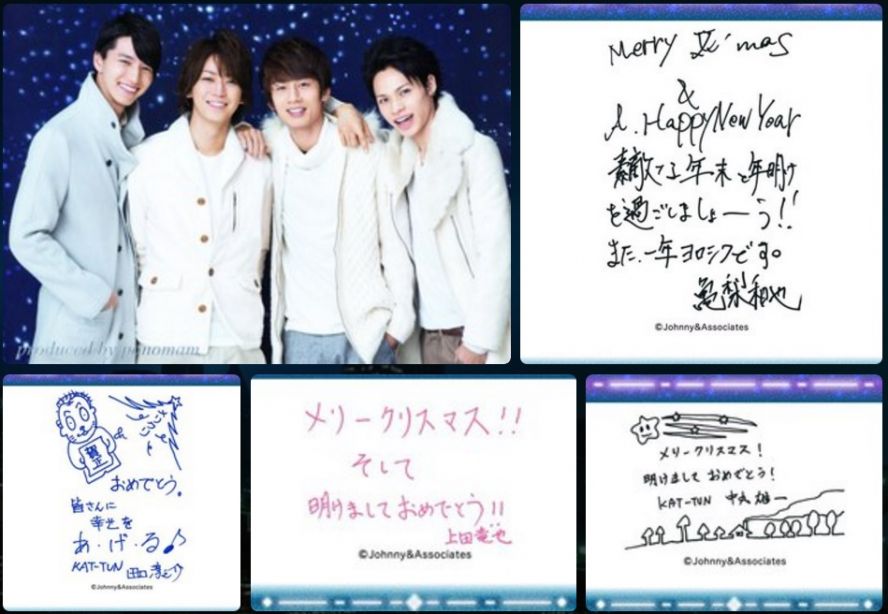 produced by ponomam
Merry X'mas
&
A. Happy New Year
素敵な年末と年明け
を過ごしましょーう!!
また、一年ヨロシクです。
亀梨和也
©Johnny&Associates
賀正
おめでとう。
皆さんに
幸せを
あ・げ・る♪
KAT-TUN 田口淳之介
©Johnny&Associates
メリークリスマス!!
そして
明けましておめでとう!!
上田竜也
©Johnny&Associates
メリークリスマス!
明けまして おめでとう!
KAT-TUN 中丸雄一
©Johnny&Associates